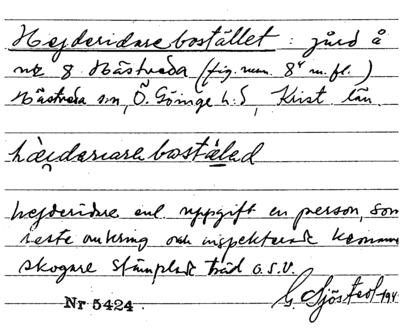 Hejderidarebostället : jård å
nr 8 Hästveda (fig. num. 8⁴ m. fl.)
Hästveda sn, Ö. Göinge h:d, Krist. län.
hejderidare enl. uppgift en person, som
reste omkring och inspekterade kronans
skogar stämplade träd o.s.v.
Nr 5424. G. Sjöstedt 194